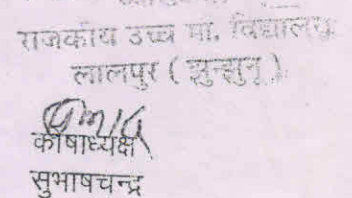 राजकीय उच्च मा. विद्यालय
लालपुर ( झुन्झुनू )
कोषाध्यक्ष
सुभाषचन्द्र